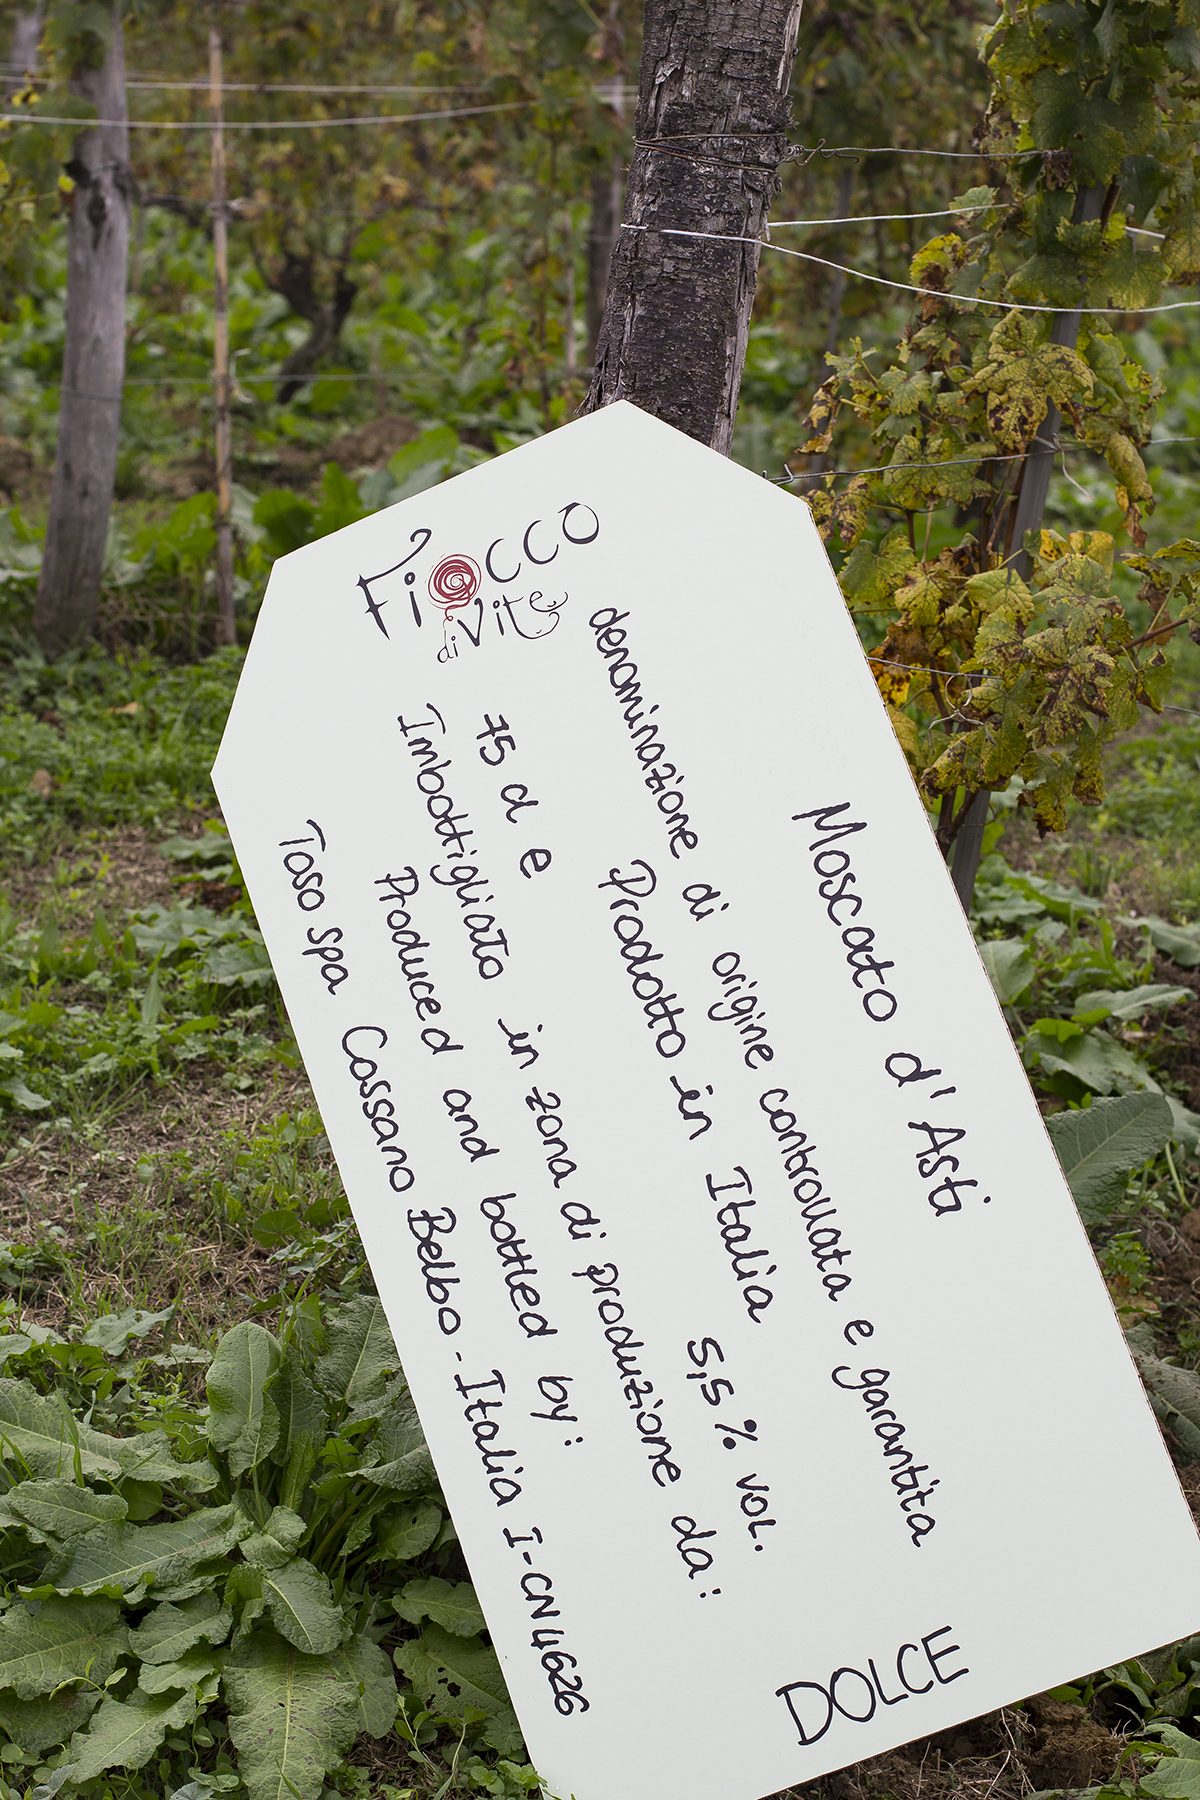 Fiocco
di Vite
Moscato d'Asti
denominazione di origine controllata e garantita
Prodotto in Italia 5,5 % VOL.
75 cl e
Imbottigliato in zona di produzione da:
Produced and bottled by:
Toso spa Cossano Belbo - Italia I-CN4626
DOLCE